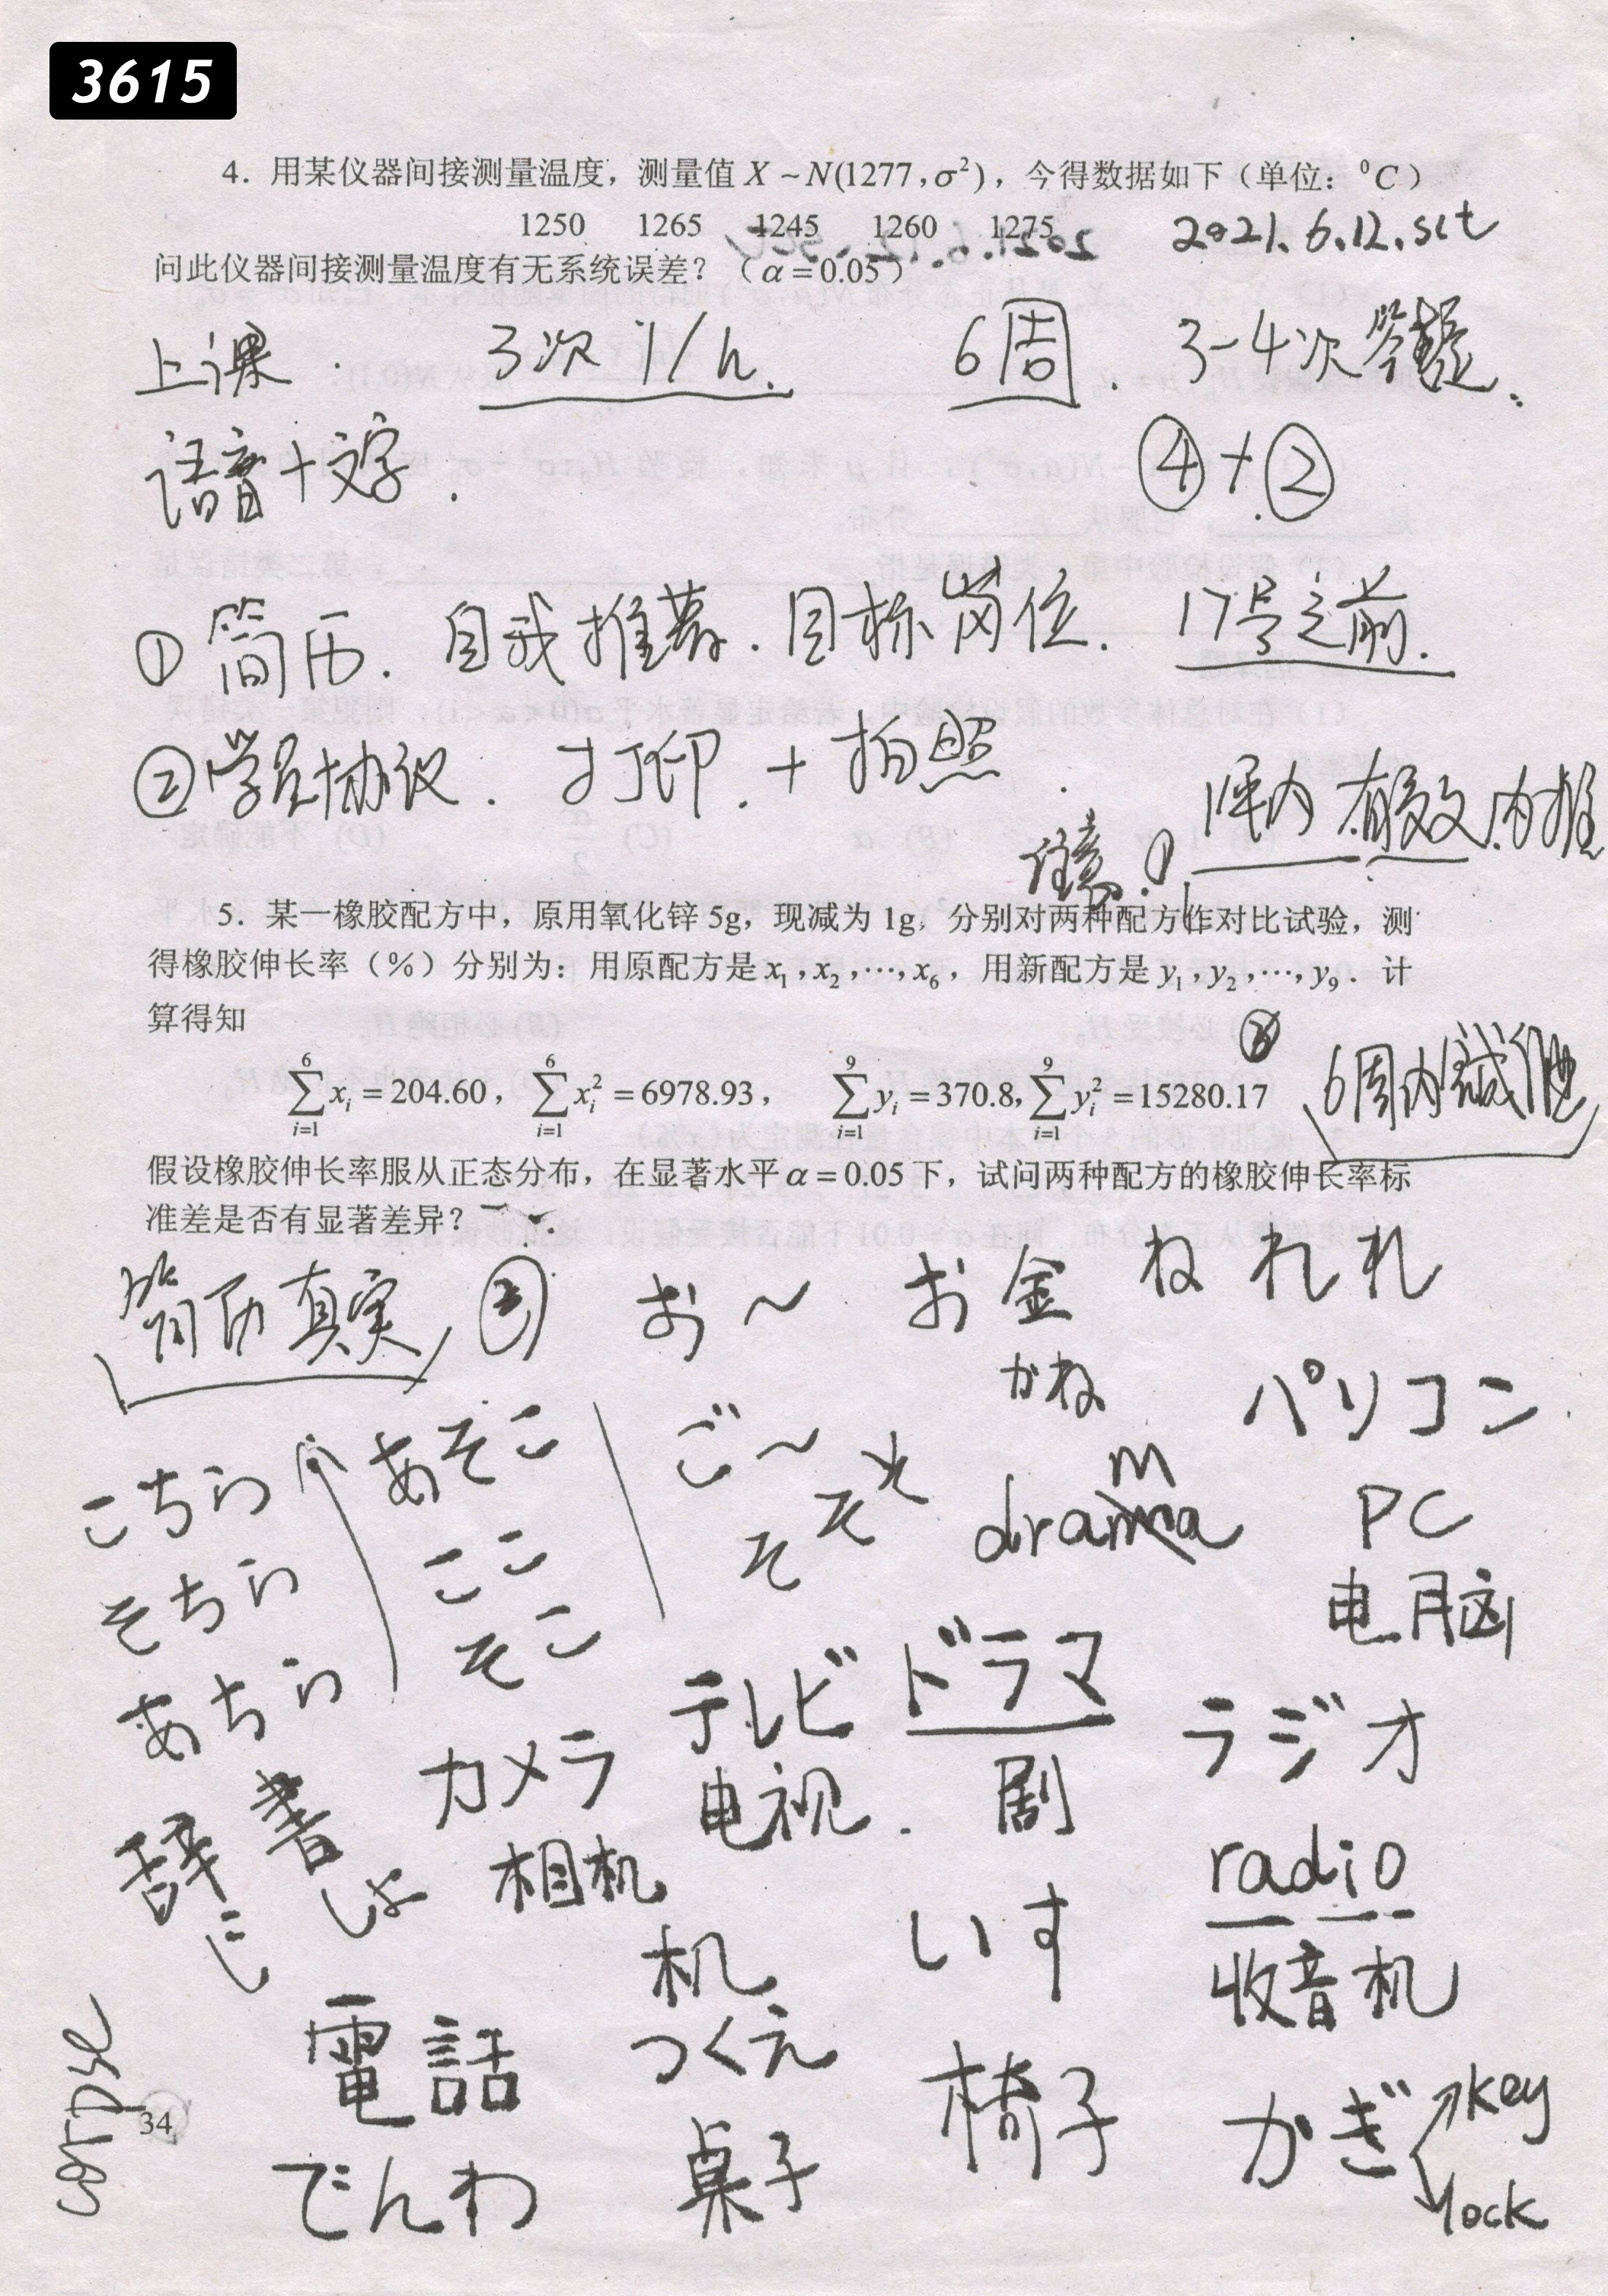 3615
4. 用某仪器间接测量温度，测量值 X ~ N(1277, σ²)，今得数据如下（单位：⁰C）
1250 1265 1245 1260 1275
2021.6.12.sct
问此仪器间接测量温度有无系统误差？（α = 0.05）
上课. 3次 1/h. 6周. 3-4次答疑.
语音+文字. ④+②
① 简历. 自我推荐. 目标岗位. 17号之前.
②学员协议. 打印. + 拍照.
注意. ① 1年内 有效.内推
5. 某一橡胶配方中，原用氧化锌 5g，现减为 1g，分别对两种配方作对比试验，测
得橡胶伸长率（%）分别为：用原配方是 x₁, x₂, ⋯, x₆，用新配方是 y₁, y₂, ⋯, y₉. 计
算得知
∑_{i=1}^{6} xᵢ = 204.60, ∑_{i=1}^{6} xᵢ² = 6978.93, ∑_{i=1}^{9} yᵢ = 370.8, ∑_{i=1}^{9} yᵢ² = 15280.17
② 6周内
假设橡胶伸长率服从正态分布，在显著水平 α = 0.05 下，试问两种配方的橡胶伸长率标
准差是否有显著差异？
简历真实 ③ お～ お金 ね れ れ
かね パソコン
こちら あそこ ご～
そちら ここ そ そ そ drama m PC
あちら そこ 电脑
テレビ ドラマ ラジオ
カメラ 电视. 剧
辞書 相机 radio
じ しょ
机 いす 收音机
電話 つくえ 椅子 かぎ key
lock
でんわ 桌子
corpse
34